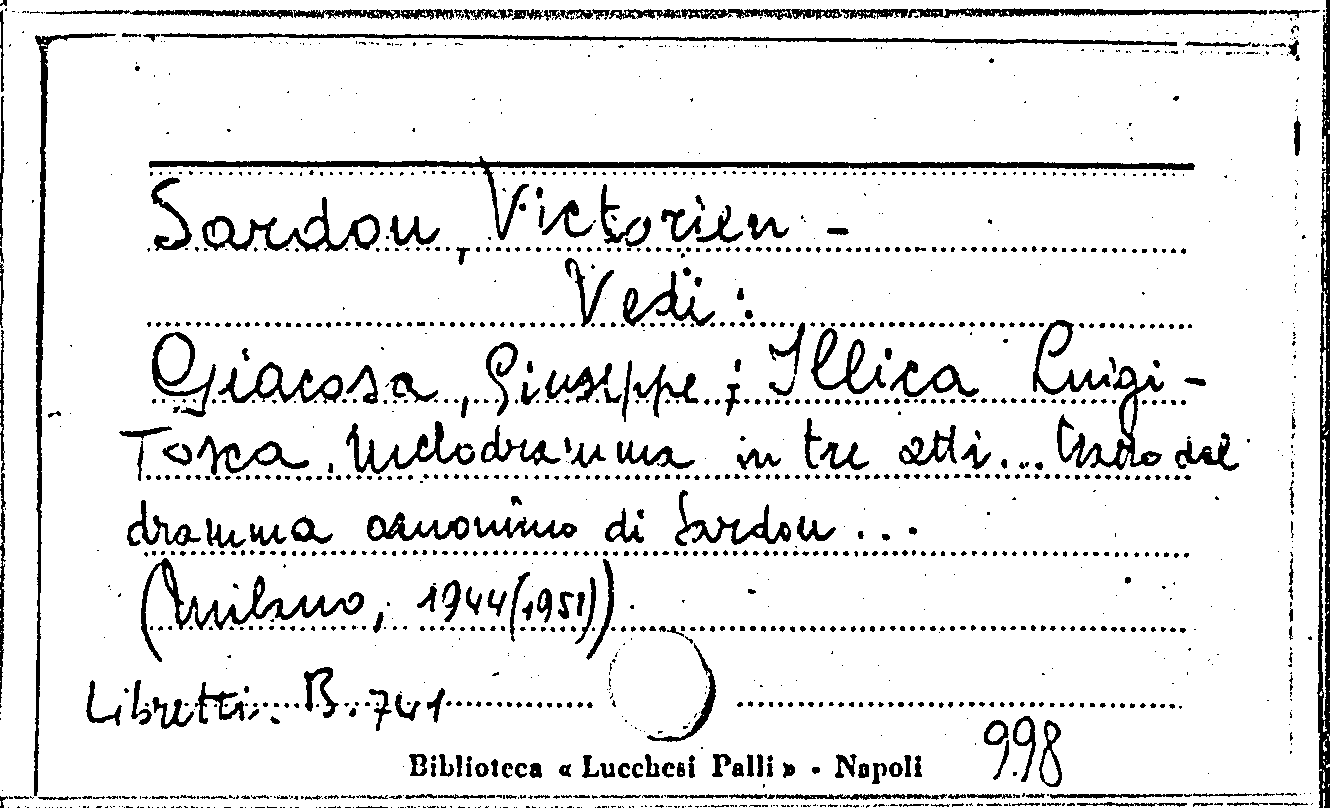 Sardou, Victorien -
Vedi :
Giacosa, Giuseppe ; Illica Luigi -
Tosca. Melodramma in tre atti... tratto dal
dramma omonimo di Sardou ...
(Milano, 1944(1951))
Libretti. B. 741
Biblioteca « Lucchesi Palli » - Napoli
998